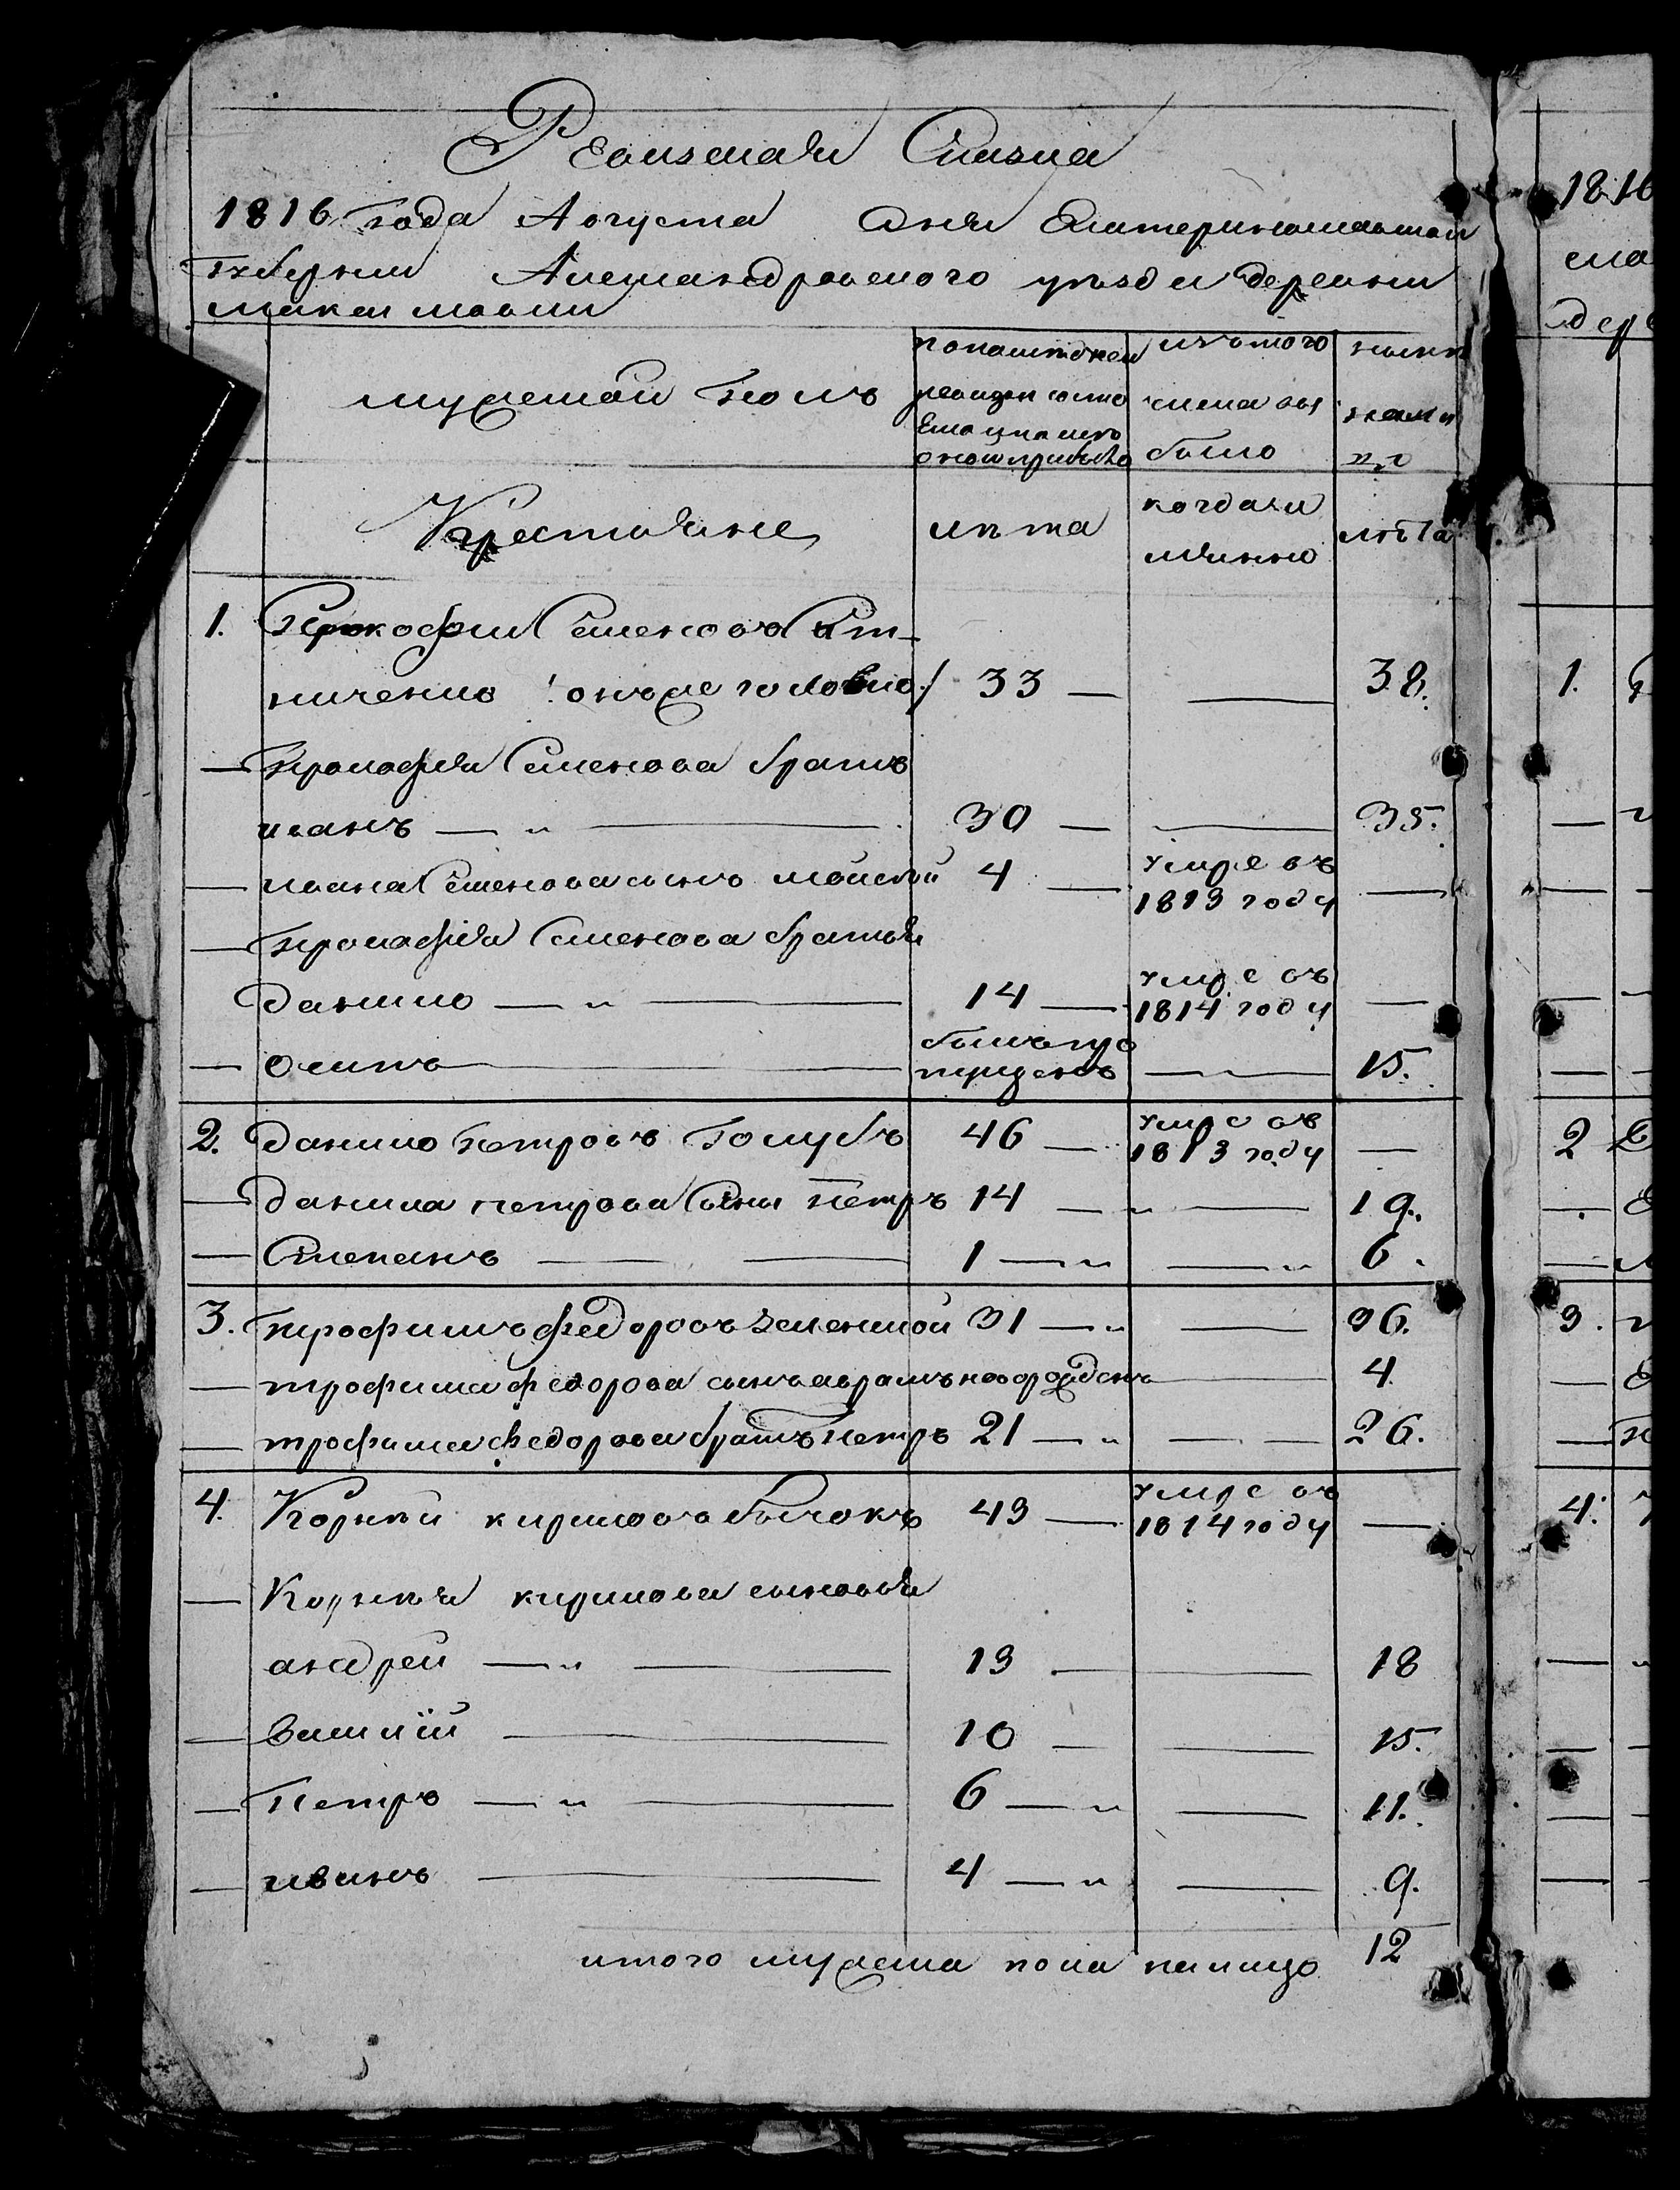 Ревизская Сказка
1816 года Августа дня Екатеринославской
губернии Александровского уѣзда деревни
мужеской полъ
по последней
ревизіи состо
яло и после
оной прибыло
изъ того
числа вы
было
нынѣ
на ли
цо
Крестьяне
лѣта
когда и
менно
лѣта
1. Прокофий Семеновъ
онъ же головно / 33 — — 38.
— Прокофия Семенова братъ
иванъ — 30 — — 35.
— ивана Семенова сынъ мойсѣй 4 — умре въ
1813 году —
— Прокофия Семенова братья
данило — 14 — умре въ
1814 году —
— осипъ — былъ про
пущенъ — 15.
2. данило петровъ голубъ 46 — умре въ
1813 году —
— данила петрова сыны петръ 14 — — 19.
— Степанъ — 1 — — 6.
3. трофимъ федоровъ зеленской 31 — — 36.
— трофима федорова сынъ аврамъ новорожденъ — 4
— трофима федорова братъ петръ 21 — — 26.
4. Корнѣй кириловъ бычокъ 43 — умре въ
1814 году —
— Корнѣя кирилова сыновья
андрей — 13 — — 18
— василій — 10 — — 15.
— Петръ — 6 — — 11.
— иванъ — 4 — — 9.
итого мужеска пола налицо 12
1816
дере
1.
2
3.
4.